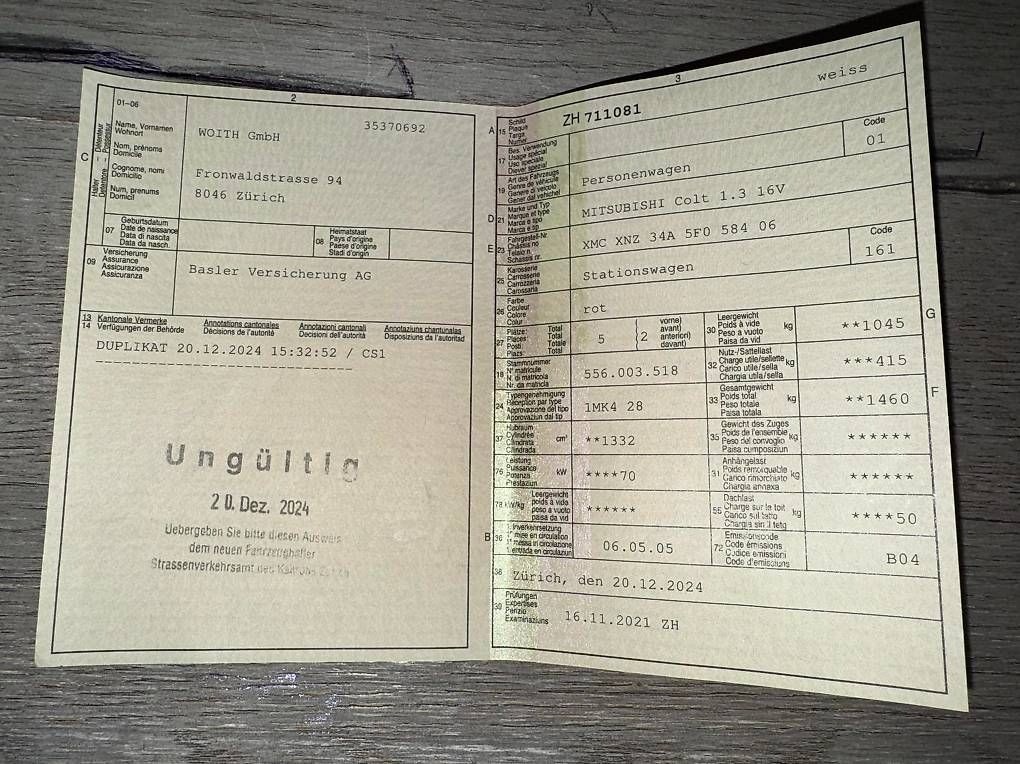 2
01-06
C
Halter
Détenteur
Detentore
Possessur
Name, Vornamen
Wohnort
Nom, prénoms
Domicile
Cognome, nomi
Domicilio
Num, prenums
Domicil
35370692
WOITH GmbH
Fronwaldstrasse 94
8046 Zürich
07
Geburtsdatum
Date de naissance
Data di nascita
Data da nasch.
08
Heimatstaat
Pays d'origine
Paese d'origine
Stadi d'origin
09
Versicherung
Assurance
Assicurazione
Assicuranza
Basler Versicherung AG
13 Kantonale Vermerke Annotations cantonales Annotazioni cantonali Annotaziuns chantunalas
14 Verfügungen der Behörde Décisions de l'autorité Decisioni dell'autorità Disposiziuns da l'autoritad
DUPLIKAT 20.12.2024 15:32:52 / CS1
Ungültig
20. Dez. 2024
Uebergeben Sie bitte diesen Ausweis
dem neuen Fahrzeughalter
Strassenverkehrsamt des Kantons Zürich
3
A 15
Schild
Plaque
Targa
Numer
ZH 711081
weiss
17
Bes. Verwendung
Usage spécial
Uso speciale
Diever spezial
19
Art des Fahrzeugs
Genre de véhicule
Genere di veicolo
Gener dal vehichel
Personenwagen
Code
01
D 21
Marke und Typ
Marque et type
Marca e tipo
Marca e tip
MITSUBISHI Colt 1.3 16V
E 23
Fahrgestell-Nr.
Châssis no
Telaio n.
Schassis nr.
XMC XNZ 34A 5F0 584 06
25
Karosserie
Carrosserie
Carrozzeria
Carossaria
Stationswagen
Code
161
26
Farbe
Couleur
Colore
Colur
rot
27
Plätze: Total
Places: Total
Posti: Totale
Plazs: Total
5
(2
vorne)
avant)
anteriori)
davant)
30
Leergewicht
Poids à vide
Peso a vuoto
Paisa da vid
kg
**1045
G
18
Stammnummer
N° matricule
N. di matricola
Nr. da matricla
556.003.518
32
Nutz-/Sattellast
Charge utile/sellette
Carico utile/sella
Chargia utila/sella
kg
***415
24
Typengenehmigung
Réception par type
Approvazione del tipo
Approvaziun dal tip
1MK4 28
33
Gesamtgewicht
Poids total
Peso totale
Paisa totala
kg
**1460
F
37
Hubraum
Cylindrée
Cilindrata
Cilindrada
cm³
**1332
35
Gewicht des Zuges
Poids de l'ensemble
Peso del convoglio
Paisa cumposiziun
kg
******
76
Leistung
Puissance
Potenza
Prestaziun
kW
****70
31
Anhängelast
Poids remorquable
Carico rimorchiato
Chargia annexa
kg
******
78 kW/kg
Leergewicht
poids à vide
peso a vuoto
paisa da vid
******
55
Dachlast
Charge sur le toit
Carico sul tetto
Chargia sin il tetg
kg
****50
B 36
1. Inverkehrsetzung
1re mise en circulation
1a messa in circolazione
1. entrada en circulaziun
06.05.05
72
Emissionscode
Code émissions
Codice emissioni
Code d'emissiuns
B04
38
Zürich, den 20.12.2024
39
Prüfungen
Expertises
Perizie
Examinaziuns
16.11.2021 ZH